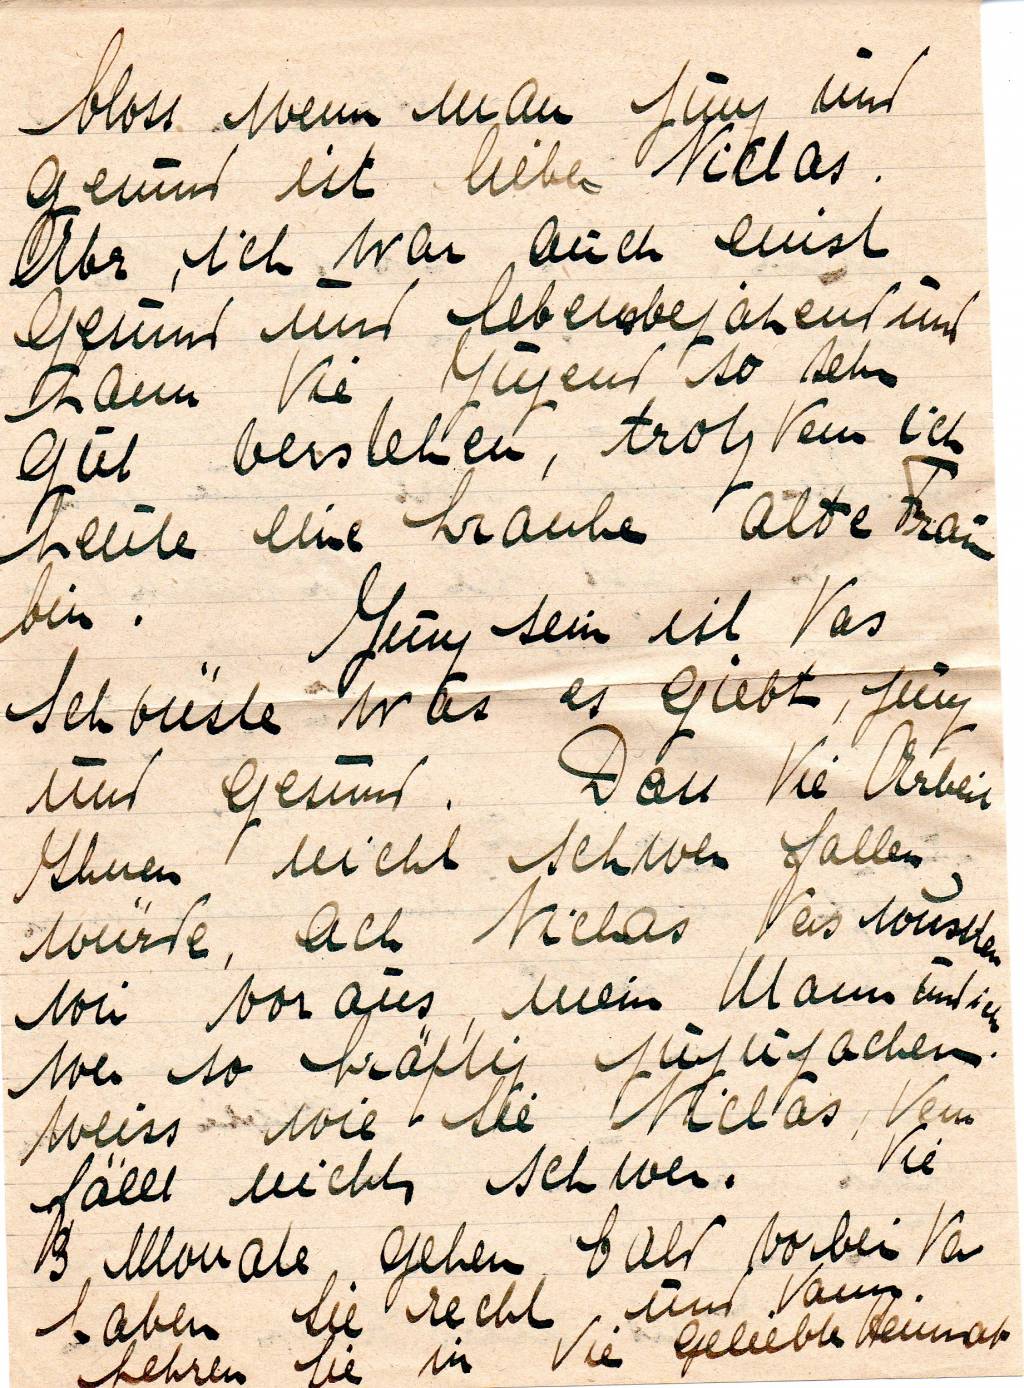 bloss wenn man jung und
gesund ist lieber Niclas.
Aber, ich war auch einst
gesund und lebensbejahend und
kann die Jugend so sehr
gut verstehen, trotzdem ich
heute eine kranke alte Frau
bin. Jung sein ist das
schönste was es giebt, jung
und gesund. Dass die Arbeit
Ihnen nicht schwer fallen
würde, ach Niclas das wussten
wir voraus, mein Mann und ich.
wer so kräftig zuzupacken
weiss wie Sie Niclas, dem
fällt nichts schwer. Die
3 Monate gehen bald vorbei da
haben Sie recht und dann
kehren Sie in die geliebte Heimat